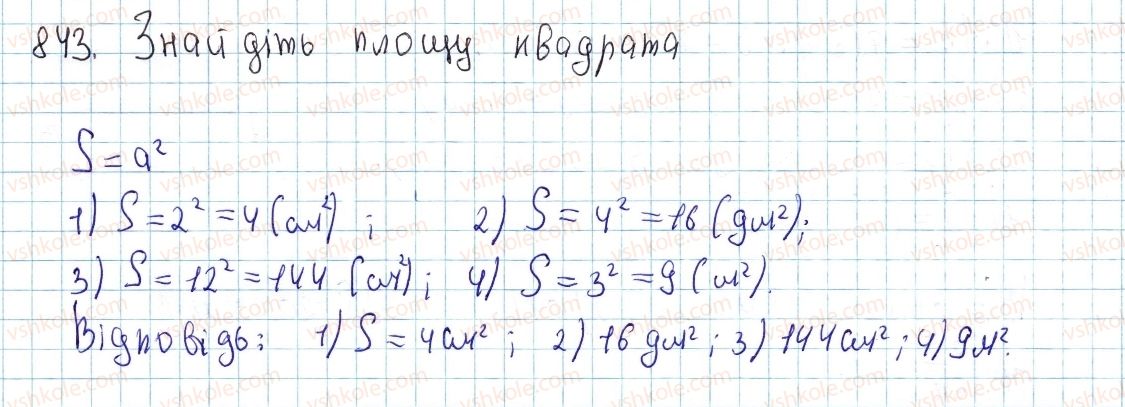 843. Знайдіть площу квадрата
S = a²
1) S = 2² = 4 (см²) ; 2) S = 4² = 16 (дм²);
3) S = 12² = 144 (см²); 4) S = 3² = 9 (м²).
Відповідь: 1) S = 4 см² ; 2) 16 дм² ; 3) 144 см² ; 4) 9 м².